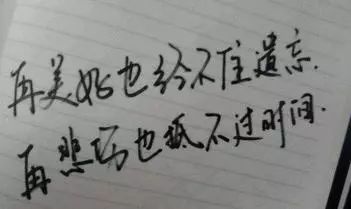 再美好也经不住遗忘.
再悲伤也抵不过时间.